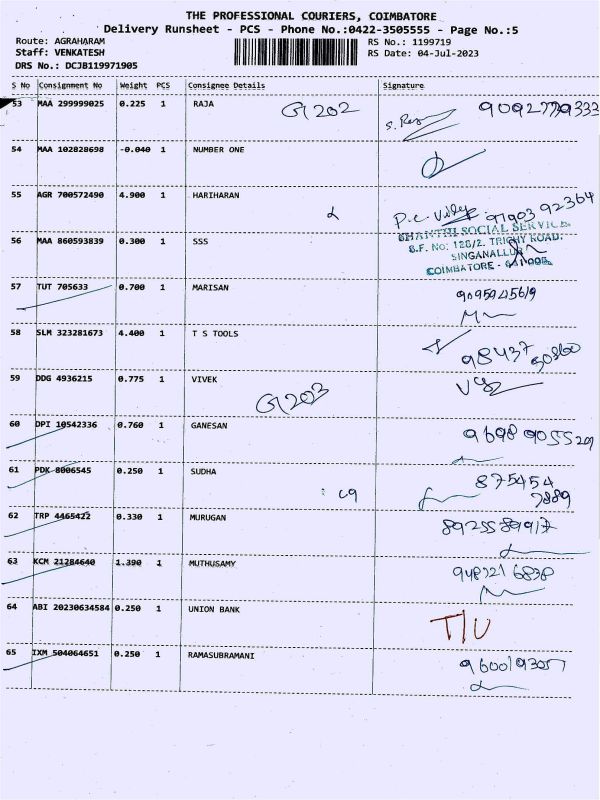 THE PROFESSIONAL COURIERS, COIMBATORE
Delivery Runsheet - PCS - Phone No.:0422-3505555 - Page No.:5
Route: AGRAHARAM RS No.: 1199719
Staff: VENKATESH RS Date: 04-Jul-2023
DRS No.: DCJB119971905
S No Consignment No Weight PCS Consignee Details Signature
53 MAA 299999025 0.225 1 RAJA G1202 9092779333
54 MAA 102828698 -0.040 1 NUMBER ONE
55 AGR 700572490 4.900 1 HARIHARAN 97903 92364
SHANTHI SOCIAL SERVICES
56 MAA 860593839 0.300 1 SSS S.F. NO: 128/2. TRICHY ROAD.
SINGANALLUR
COIMBATORE -
57 TUT 705633 0.700 1 MARISAN 9095945619
58 SLM 323281673 4.400 1 T S TOOLS 98437
59 DDG 4936215 0.775 1 VIVEK
G1203
60 DPI 10542336 0.760 1 GANESAN 9698 9055209
61 PDK 8006545 0.250 1 SUDHA 875454
7889
62 TRP 4465422 0.330 1 MURUGAN 8925589917
63 KCM 21284640 1.390 1 MUTHUSAMY 948721 6838
64 ABI 20230634584 0.250 1 UNION BANK T/U
65 IXM 504064651 0.250 1 RAMASUBRAMANI 9600193057